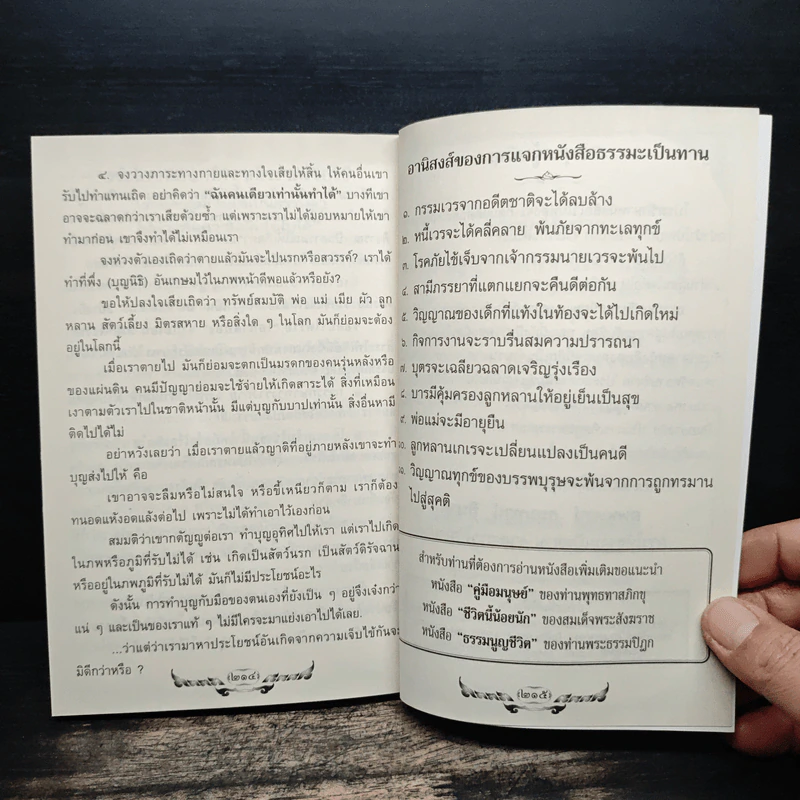 ๔. จงวางภาระทางกายและทางใจเสียให้สิ้น ให้คนอื่นเขา
รับไปทำแทนเถิด อย่าคิดว่า “ฉันคนเดียวเท่านั้นทำได้” บางทีเขา
อาจจะฉลาดกว่าเราเสียด้วยซ้ำ แต่เพราะเราไม่ได้มอบหมายให้เขา
ทำมาก่อน เขาจึงทำได้ไม่เหมือนเรา
จงห่วงตัวเองเถิดว่าตายแล้วมันจะไปนรกหรือสวรรค์? เราได้
ทำที่พึ่ง (บุญนิธิ) อันเกษมไว้ในภพหน้าดีพอแล้วหรือยัง?
ขอให้ปลงใจเสียเถิดว่า ทรัพย์สมบัติ พ่อ แม่ เมีย ผัว ลูก
หลาน สัตว์เลี้ยง มิตรสหาย หรือสิ่งใด ๆ ในโลก มันก็ย่อมจะต้อง
อยู่ในโลกนี้
เมื่อเราตายไป มันก็ย่อมจะตกเป็นมรดกของคนรุ่นหลังหรือ
ของแผ่นดิน คนมีปัญญาย่อมจะใช้จ่ายให้เกิดสาระได้ สิ่งที่เหมือน
เงาตามตัวเราไปในชาติหน้านั้น มีแต่บุญกับบาปเท่านั้น สิ่งอื่นหามี
ติดไปได้ไม่
อย่าหวังเลยว่า เมื่อเราตายแล้วญาติที่อยู่ภายหลังเขาจะทำ
บุญส่งไปให้ คือ
เขาอาจจะลืมหรือไม่สนใจ หรือขี้เหนียวก็ตาม เราก็ต้อง
ทนอดแห้งอดแล้งต่อไป เพราะไม่ได้ทำเอาไว้เองก่อน
สมมติว่าเขากตัญญูต่อเรา ทำบุญอุทิศไปให้เรา แต่เราไปเกิด
ในภพหรือภูมิที่รับไม่ได้ เช่น เกิดเป็นสัตว์นรก เป็นสัตว์ดิรัจฉาน
หรืออยู่ในภพภูมิที่รับไม่ได้ มันก็ไม่มีประโยชน์อะไร
ดังนั้น การทำบุญกับมือของตนเองที่ยังเป็น ๆ อยู่จึงเจ๋งกว่า
แน่ ๆ และเป็นของเราแท้ ๆ ไม่มีใครจะมาแย่งเอาไปได้เลย.
...ว่าแต่ว่าเรามาหาประโยชน์อันเกิดจากความเจ็บไข้กันจะ
มิดีกว่าหรือ ?
(๒๑๔)
อานิสงส์ของการแจกหนังสือธรรมะเป็นทาน
๑. กรรมเวรจากอดีตชาติจะได้ลบล้าง
๒. หนี้เวรจะได้คลี่คลาย พ้นภัยจากทะเลทุกข์
๓. โรคภัยไข้เจ็บจากเจ้ากรรมนายเวรจะพ้นไป
๔. สามีภรรยาที่แตกแยกจะคืนดีต่อกัน
๕. วิญญาณของเด็กที่แท้งในท้องจะได้ไปเกิดใหม่
๖. กิจการงานจะราบรื่นสมความปรารถนา
๗. บุตรจะเฉลียวฉลาดเจริญรุ่งเรือง
๘. บารมีคุ้มครองลูกหลานให้อยู่เย็นเป็นสุข
๙. พ่อแม่จะมีอายุยืน
๑๐. ลูกหลานเกเรจะเปลี่ยนแปลงเป็นคนดี
๑๑. วิญญาณทุกข์ของบรรพบุรุษจะพ้นจากการถูกทรมาน
ไปสู่สุคติ
สำหรับท่านที่ต้องการอ่านหนังสือเพิ่มเติมขอแนะนำ
หนังสือ “คู่มือมนุษย์” ของท่านพุทธทาสภิกขุ
หนังสือ “ชีวิตนี้น้อยนัก” ของสมเด็จพระสังฆราช
หนังสือ “ธรรมนูญชีวิต” ของท่านพระธรรมปิฎก
(๒๑๕)